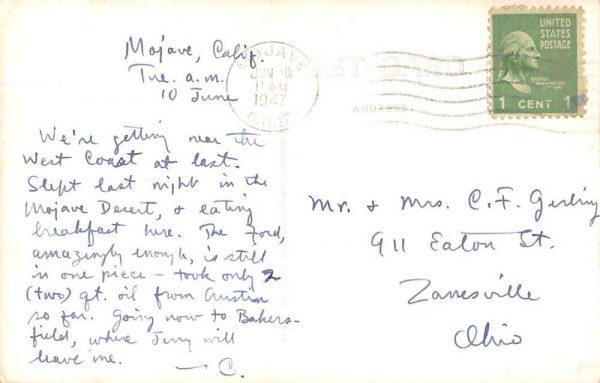 Mojave, Calif.
Tue. a.m.
10 June
We're getting near the
West Coast at last.
Slept last night in the
Mojave Desert, & eating
breakfast here. The Ford,
amazingly enough, is still
in one piece – took only 2
(two) qt. oil from Austin
so far. Going now to Bakers-
field, where Jerry will
leave me.
— C.
MOJAVE
JUN 10
11 AM
1947
CALIF.
POST CARD
ADDRESS
UNITED
STATES
POSTAGE
GEORGE
WASHINGTON
1 CENT 1
Mr. & Mrs. C. F. Gerling
911 Eaton St.
Zanesville
Ohio